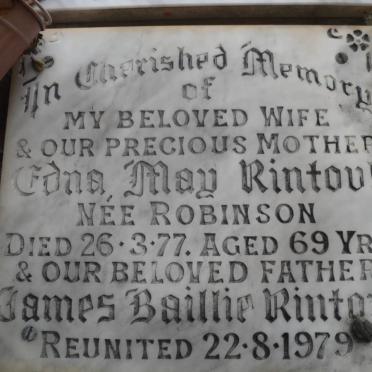 In Cherished Memory
of
MY BELOVED WIFE
& OUR PRECIOUS MOTHER
Edna May Rintou
NÉE ROBINSON
DIED 26·3·77. AGED 69 YR
& OUR BELOVED FATHER
James Baillie Rinto
REUNITED 22·8·1979